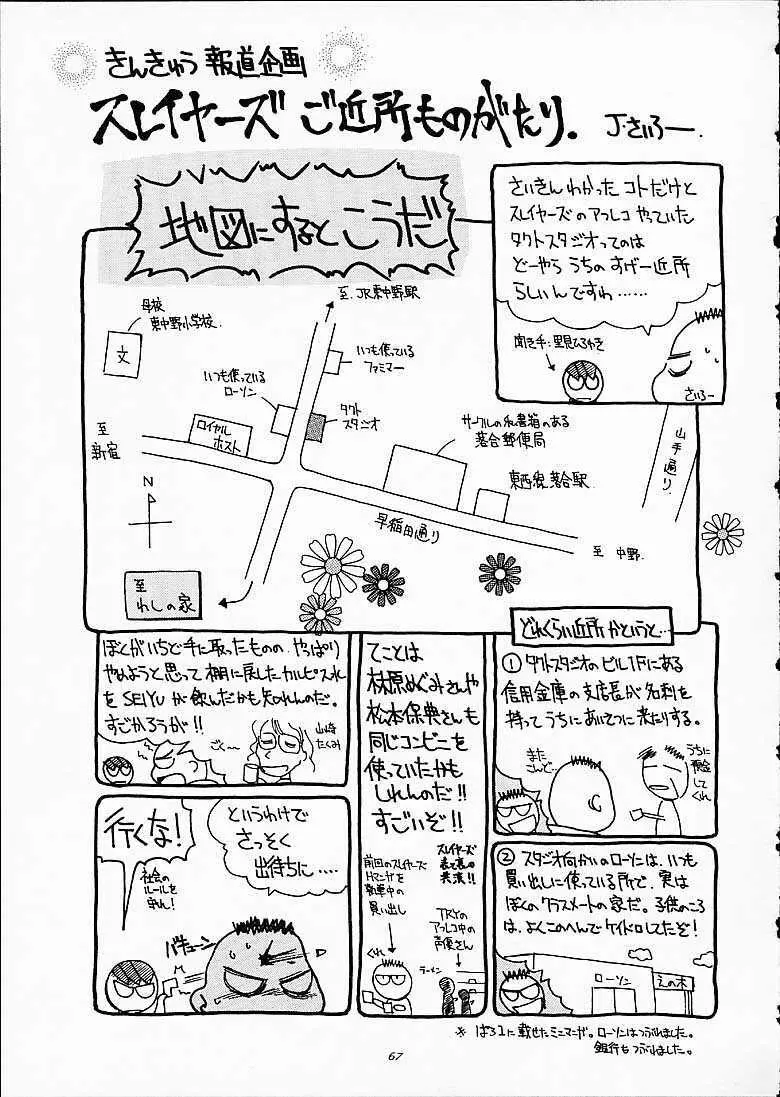 きんきゅう 報道企画
スレイヤーズ ご近所ものがたり。
J・さいろー.
地図にするとこうだ
さいきんわかった コトだけと
スレイヤーズのアフレコ やっていた
タクトスタジオってのは
どーやら うちの すげー近所
らしいんですわ……
聞き手:里見ひろゆき
さいろー
至.JR東中野駅
母校
東中野小学校.
文
いつも使っている
ファミマー
いつも使っている
ローソン
タクト
スタジオ
ロイヤル
ホスト
サークルの私書箱のある
落合郵便局
東西線落合駅
山手通り
至
新宿
N
早稲田通り
至 中野.
至
わしの家
どれくらい近所かというと…
① タクトスタジオのビル1Fにある
信用金庫の支店長が名刺を
持ってうちにあいさつに来たりする。
また
こんど…
うちに
預金
して
くれ
② スタジオ向かいのローソンは、いつも
買い出しに使っている所で、実は
ぼくのクラスメートの家だ。子供のころ
は、よくこのへんでケイドロしてたぞ!
ローソン
えの木
てことは
林原めぐみさんや
松本保典さんも
同じコンビニを
使っていたかも
しれんのだ!!
すごいぞ!!
スレイヤーズ
表と裏の
共演!!
前回のスレイヤーズ
Hマンガを
執筆中の
買い出し
TRYの
アフレコ中の
声優さん
くれ
ラーメン
ぼくがいちど手に取ったものの、やっぱり
やめようと思って棚に戻したカルピスウォーター
をSEIYUが飲んだかも知れんのだ。
すごかろうが!!
ごく〜
山崎
たくみ
というわけで
さっそく
出待ちに……
行くな!
社会の
ルールを
守れ!
バキューン
※ ぱろ1に載せたミニマンガ。ローソンはつぶれました。
銀行もつぶれました。
67